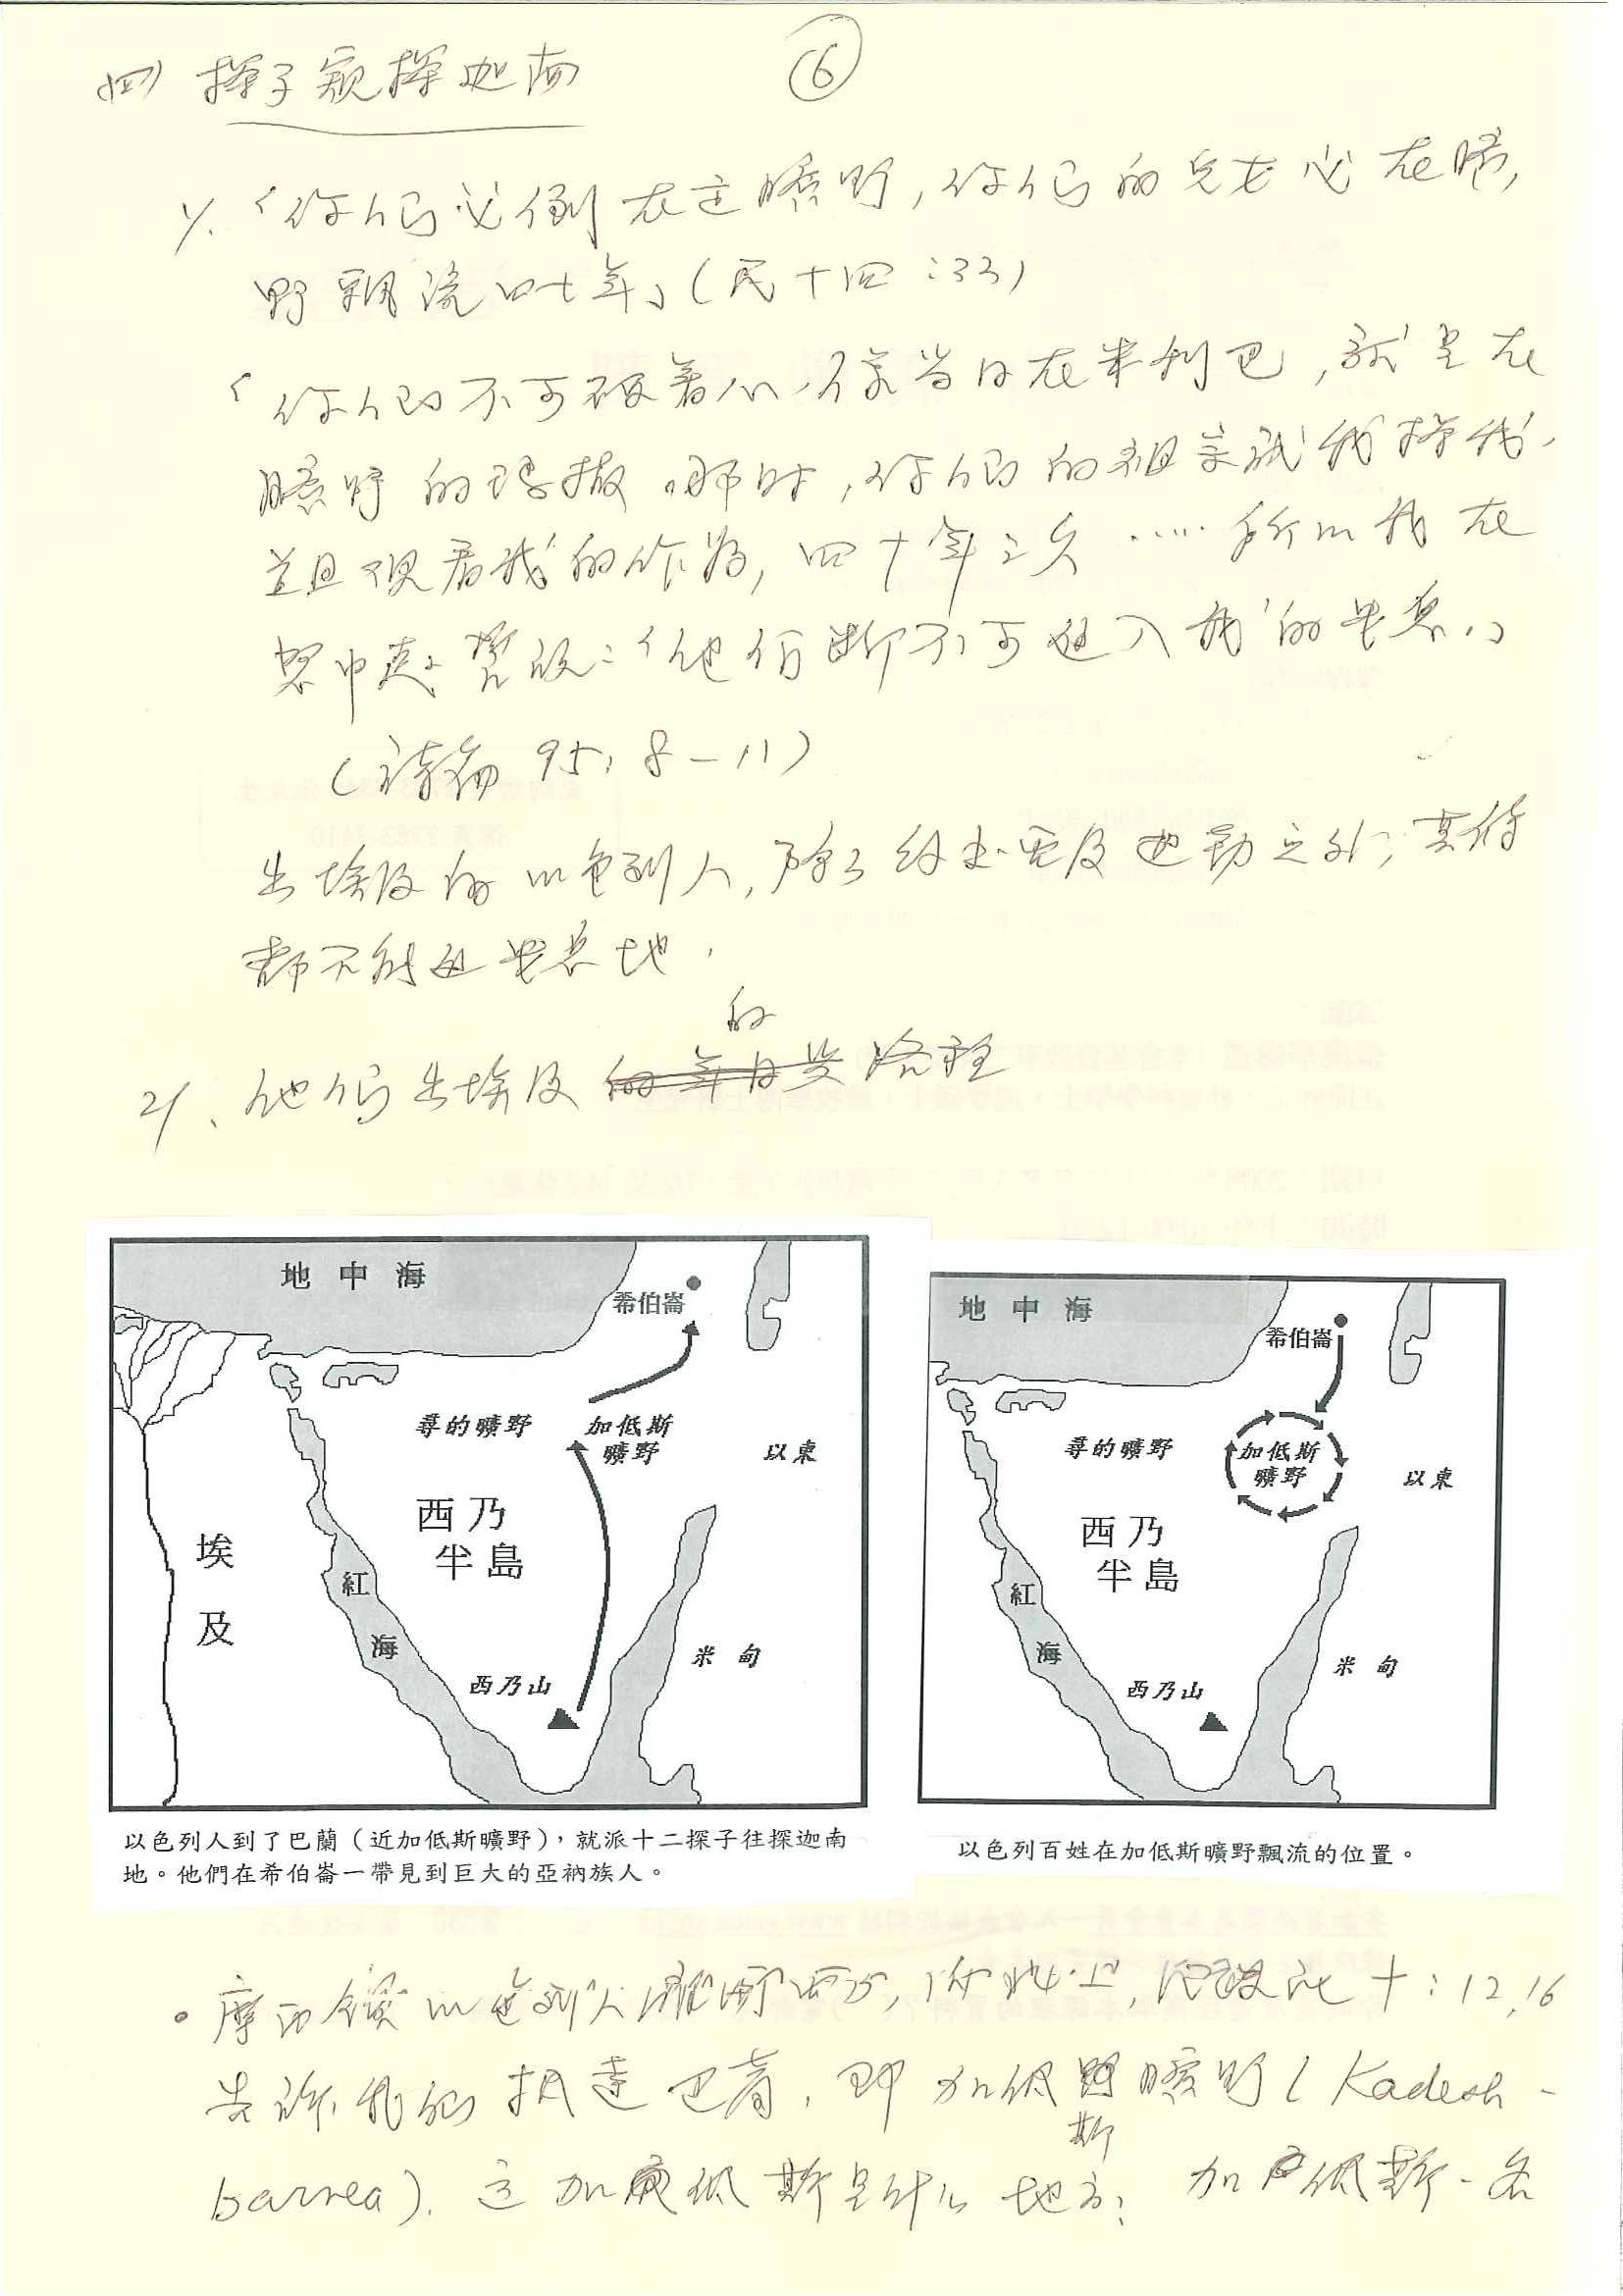 ⑥
四) 探子窺探迦南
1/. 「你們必倒在這曠野,你們的兒女必在曠
野飄流四十年」(民十四:33)
「你們不可硬着心,像當日在米利巴,就是在
曠野的瑪撒。那時,你們的祖宗試我探我,
並且觀看我的作為,四十年之久 ..... 所以我在
怒中起誓說:「他們斷不可進入我的安息」
(詩篇 95:8-11)
出埃及的以色列人,除了約書亞及迦勒之外,其餘
都不能進安息地.
2/、他們出埃及的路程
地中海
希伯崙
尋的曠野
加低斯
曠野
以東
西乃
半島
埃及
紅海
西乃山
米甸
以色列人到了巴蘭(近加低斯曠野),就派十二探子往探迦南
地。他們在希伯崙一帶見到巨大的亞衲族人。
地中海
希伯崙
尋的曠野
加低斯
曠野
以東
西乃
半島
紅海
西乃山
米甸
以色列百姓在加低斯曠野飄流的位置。
• 摩西領以色列人離開西乃, 十:12,16
告訴我們抵達巴蘭,即加低斯曠野(Kadesh-
barnea). 這加低斯是什么地方; 加低斯一名